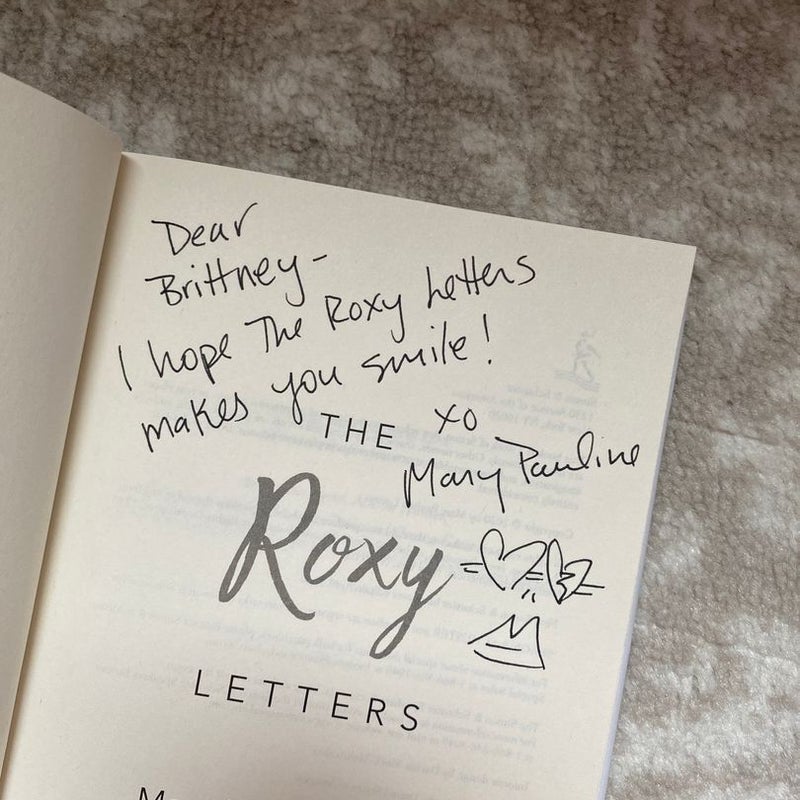 Dear
Brittney-
I hope The Roxy Letters
makes you smile!
xo
Mary Pauline
THE
Roxy
LETTERS